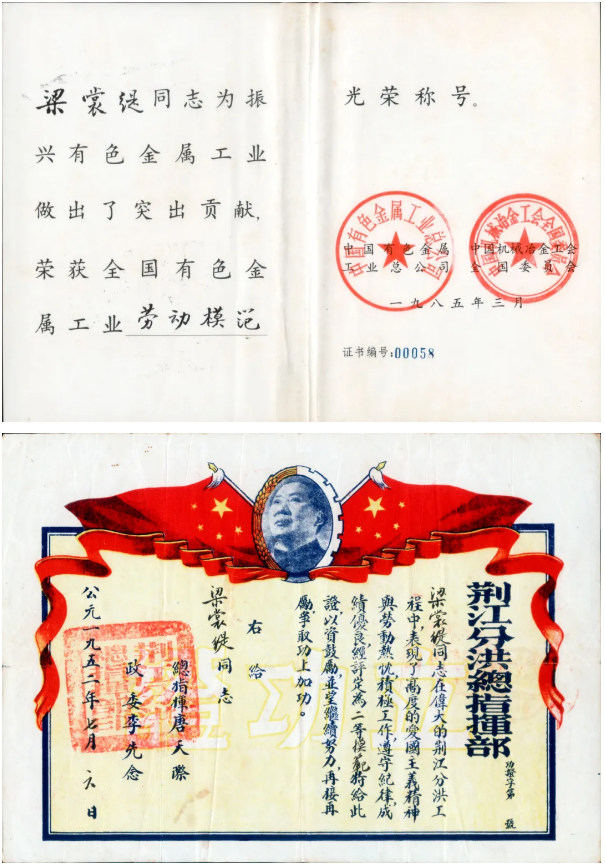 梁裳缇同志为振
兴有色金属工业
做出了突出贡献，
荣获全国有色金
属工业劳动模范
光荣称号。
中国有色金属工业总公司
中国机械冶金工会全国委员会
中国有色金属
工业总公司
中国机械冶金工会
全国委员会
一九八五年三月
证书编号:00058
荆江分洪總指揮部
功證字第 號
梁裳缇同志在偉大的荆江分洪工
程中,表現了高度的愛國主義精神
與勞動熱忱,積極工作,遵守紀律,成
績優良,經評定為二等模範,特給此
證,以資鼓勵,並望繼續努力,再接再
厲爭取功上加功。
右給
梁裳缇同志
總指揮唐天際
政委李先念
公元一九五二年七月六日
立功證